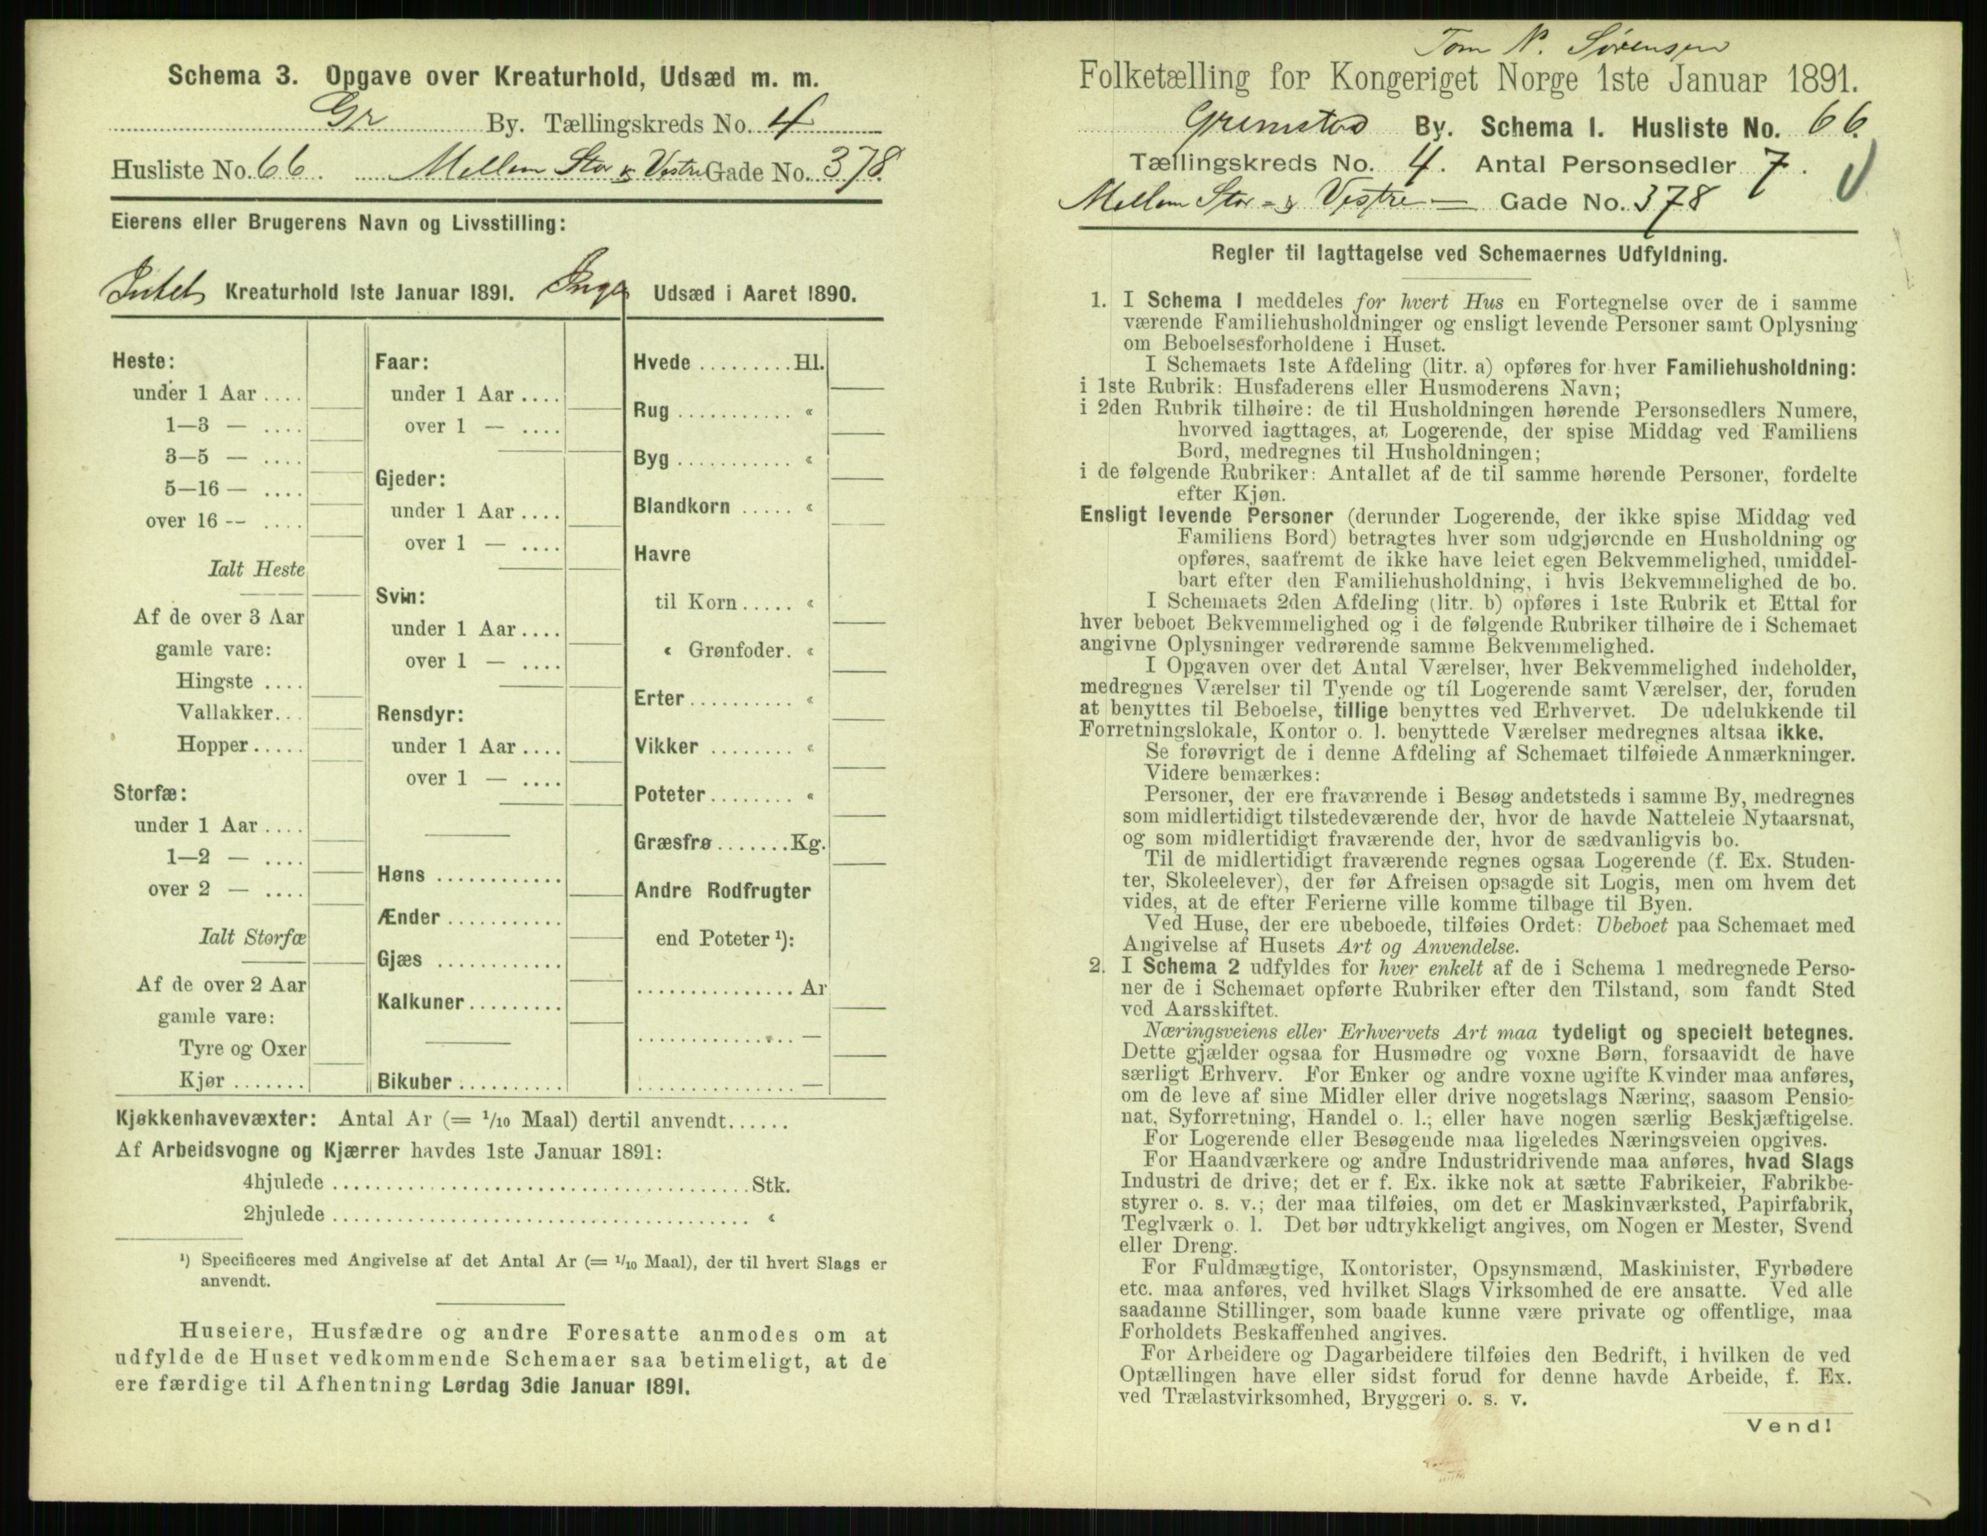 Schema 3. Opgave over Kreaturhold, Udsæd m. m.
Gr By. Tællingskreds No. 4
Husliste No. 66. Mellem Stor & Vestre Gade No. 378.
Eierens eller Brugerens Navn og Livsstilling:
Intet Kreaturhold 1ste Januar 1891. Ingen Udsæd i Aaret 1890.
Heste:
under 1 Aar ....
1—3 — ....
3—5 — ....
5—16 — ....
over 16 -- ....
Ialt Heste
Af de over 3 Aar
gamle vare:
Hingste ....
Vallakker...
Hopper.....
Storfæ:
under 1 Aar ....
1—2 — ....
over 2 — ....
Ialt Storfæ
Af de over 2 Aar
gamle vare:
Tyre og Oxer
Kjør .......
Faar:
under 1 Aar ....
over 1 — ....
Gjeder:
under 1 Aar ....
over 1 — ....
Svin:
under 1 Aar ....
over 1 — ....
Rensdyr:
under 1 Aar ....
over 1 — ....
Høns ............
Ænder ...........
Gjæs ............
Kalkuner.........
Bikuber ..........
Hvede .........Hl.
Rug ........... «
Byg ........... «
Blandkorn ..... «
Havre
til Korn..... «
« Grønfoder. «
Erter.......... «
Vikker ........ «
Poteter........ «
Græsfrø .......Kg.
Andre Rodfrugter
end Poteter ¹):
............... Ar
............... —
............... —
Kjøkkenhavevæxter: Antal Ar (= 1/10 Maal) dertil anvendt......
Af Arbeidsvogne og Kjærrer havdes 1ste Januar 1891:
4hjulede ......................................Stk.
2hjulede ...................................... «
¹) Specificeres med Angivelse af det Antal Ar (= 1/10 Maal), der til hvert Slags er
anvendt.
Huseiere, Husfædre og andre Foresatte anmodes om at
udfylde de Huset vedkommende Schemaer saa betimeligt, at de
ere færdige til Afhentning Lørdag 3die Januar 1891.
Tom N. Sørensen
Folketælling for Kongeriget Norge 1ste Januar 1891.
Grimstad By. Schema 1. Husliste No. 66.
Tællingskreds No. 4. Antal Personsedler 7.
Mellem Stor- & Vestre — Gade No. 378
Regler til Iagttagelse ved Schemaernes Udfyldning.
1. I Schema 1 meddeles for hvert Hus en Fortegnelse over de i samme
værende Familiehusholdninger og ensligt levende Personer samt Oplysning
om Beboelsesforholdene i Huset.
I Schemaets 1ste Afdeling (litr. a) opføres for hver Familiehusholdning:
i 1ste Rubrik: Husfaderens eller Husmoderens Navn;
i 2den Rubrik tilhøire: de til Husholdningen hørende Personsedlers Numere,
hvorved iagttages, at Logerende, der spise Middag ved Familiens
Bord, medregnes til Husholdningen;
i de følgende Rubriker: Antallet af de til samme hørende Personer, fordelte
efter Kjøn.
Ensligt levende Personer (derunder Logerende, der ikke spise Middag ved
Familiens Bord) betragtes hver som udgjørende en Husholdning og
opføres, saafremt de ikke have leiet egen Bekvemmelighed, umiddel-
bart efter den Familiehusholdning, i hvis Bekvemmelighed de bo.
I Schemaets 2den Afdeling (litr. b) opføres i 1ste Rubrik et Ettal for
hver beboet Bekvemmelighed og i de følgende Rubriker tilhøire de i Schemaet
angivne Oplysninger vedrørende samme Bekvemmelighed.
I Opgaven over det Antal Værelser, hver Bekvemmelighed indeholder,
medregnes Værelser til Tyende og til Logerende samt Værelser, der, foruden
at benyttes til Beboelse, tillige benyttes ved Erhvervet. De udelukkende til
Forretningslokale, Kontor o. l. benyttede Værelser medregnes altsaa ikke.
Se forøvrigt de i denne Afdeling af Schemaet tilføiede Anmærkninger.
Videre bemærkes:
Personer, der ere fraværende i Besøg andetsteds i samme By, medregnes
som midlertidigt tilstedeværende der, hvor de havde Natteleie Nytaarsnat,
og som midlertidigt fraværende der, hvor de sædvanligvis bo.
Til de midlertidigt fraværende regnes ogsaa Logerende (f. Ex. Studen-
ter, Skoleelever), der før Afreisen opsagde sit Logis, men om hvem det
vides, at de efter Ferierne ville komme tilbage til Byen.
Ved Huse, der ere ubeboede, tilføies Ordet: Ubeboet paa Schemaet med
Angivelse af Husets Art og Anvendelse.
2. I Schema 2 udfyldes for hver enkelt af de i Schema 1 medregnede Perso-
ner de i Schemaet opførte Rubriker efter den Tilstand, som fandt Sted
ved Aarsskiftet.
Næringsveiens eller Erhvervets Art maa tydeligt og specielt betegnes.
Dette gjælder ogsaa for Husmødre og voxne Børn, forsaavidt de have
særligt Erhverv. For Enker og andre voxne ugifte Kvinder maa anføres,
om de leve af sine Midler eller drive nogetslags Næring, saasom Pensio-
nat, Syforretning, Handel o. l.; eller have nogen særlig Beskjæftigelse.
For Logerende eller Besøgende maa ligeledes Næringsveien opgives.
For Haandværkere og andre Industridrivende maa anføres, hvad Slags
Industri de drive; det er f. Ex. ikke nok at sætte Fabrikeier, Fabrikbe-
styrer o. s. v.; der maa tilføies, om det er Maskinværksted, Papirfabrik,
Teglværk o. l. Det bør udtrykkeligt angives, om Nogen er Mester, Svend
eller Dreng.
For Fuldmægtige, Kontorister, Opsynsmænd, Maskinister, Fyrbødere
etc. maa anføres, ved hvilket Slags Virksomhed de ere ansatte. Ved alle
saadanne Stillinger, som baade kunne være private og offentlige, maa
Forholdets Beskaffenhed angives.
For Arbeidere og Dagarbeidere tilføies den Bedrift, i hvilken de ved
Optællingen have eller sidst forud for denne havde Arbeide, f. Ex.
ved Trælastvirksomhed, Bryggeri o. s. v.
Vend!